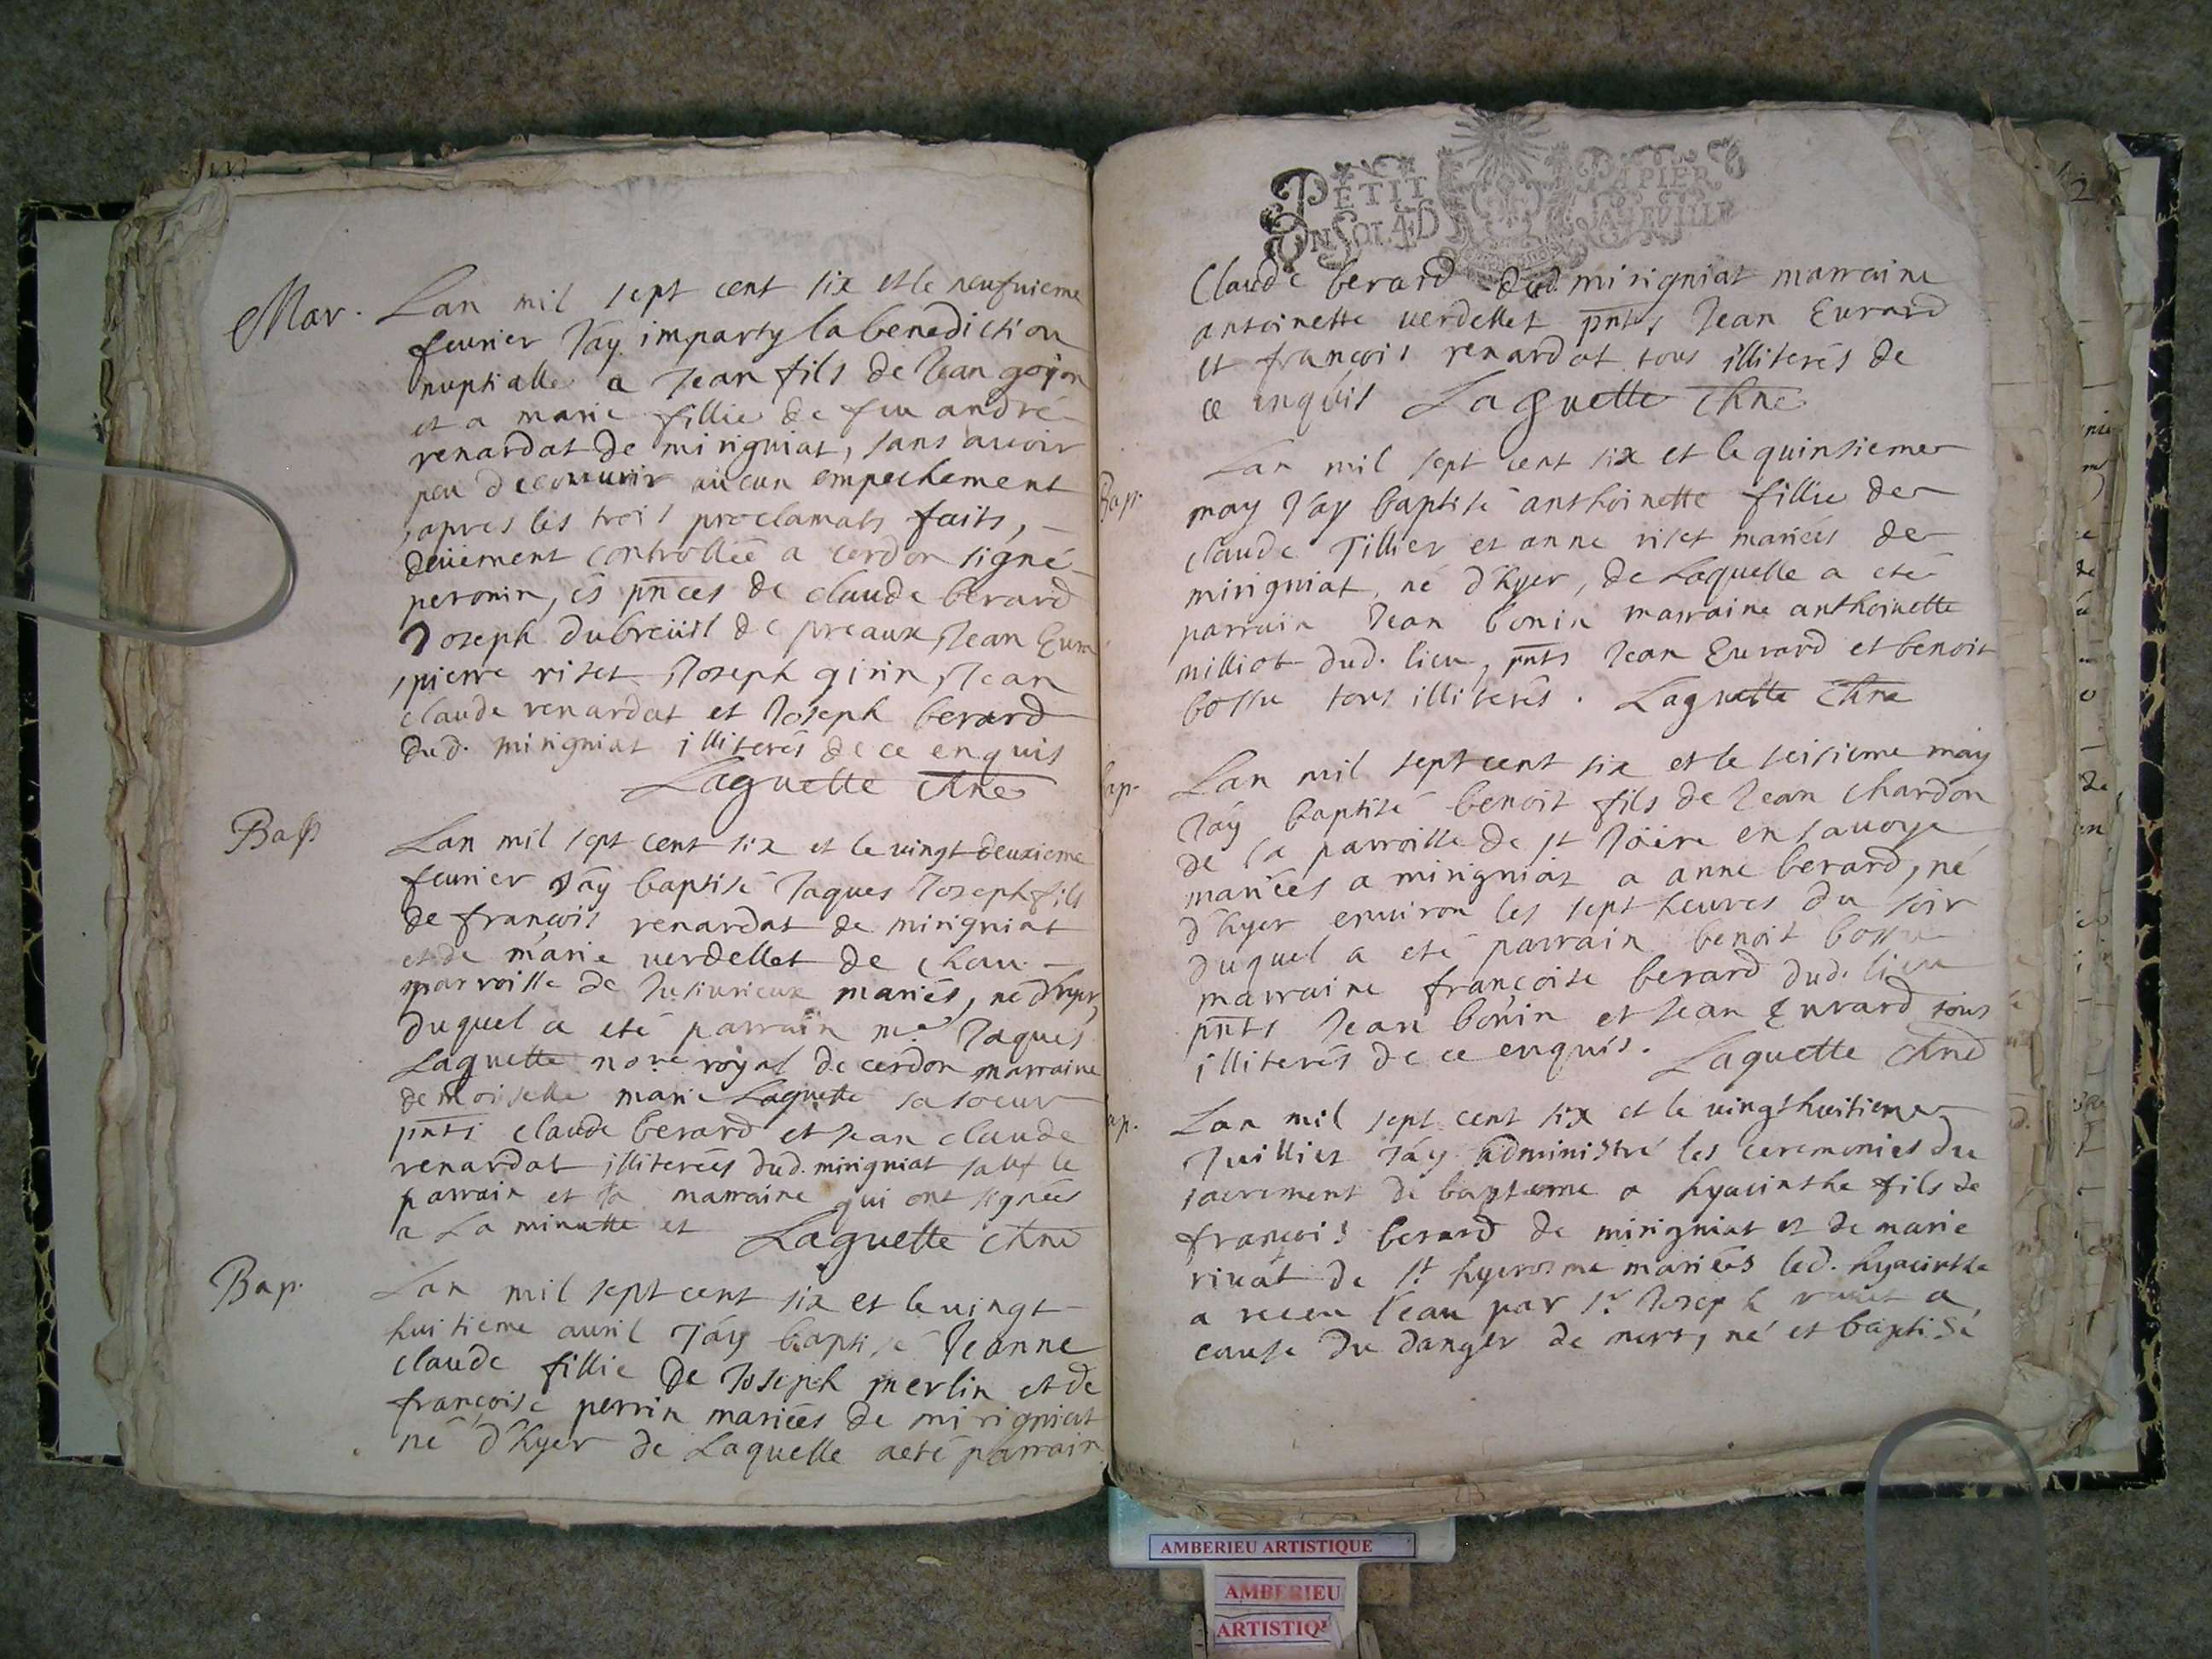 Mar.
Lan mil sept cent six et le neufuieme
feurier Jáy imparty la benediction
nuptialle a Jean fils de Jean goÿon
et a marie fillie de feu andré
renardat de mirigniat, sans auoir
peu decouurir aucun empechement
apres les trois proclamats faits,
deüement controllée a cerdon signé
peronin, és pn̄ces de claude berard
Joseph dubreüil de preaux, Jean Eura
pierre riset Joseph girin, Jean
claude renardat et Joseph berard
dud. mirigniat illiterés de ce enquis
Laguette
Bap
Lan mil sept cent six et le uingt deuxieme
feurier Jáy baptisé Jaques Joseph fils
de françois renardat de mirigniat
et de marie uerdellet de chau
parroisse de Jusiurieux mariés, né dhyer,
duquel a eté parrain me. Jaques
Laguette nore royal de cerdon marraine
demoiselle marie Laguette sa soeur
pn̄ts claude berard et Jean claude
renardat illiterées dud. mirigniat sauf le
parrain et la marraine qui ont signées
a La minutte et Laguette
Bap.
Lan mil sept cent six et le uingt
huitieme auril Jáy baptisé Jeanne
claude fillie de Joseph merlin et de
françoise perrin mariées de mirigniat
né d'hyer de Laquelle a eté parrain
PETIT PAPIER
UN SOL 4 D LA FEVILLE
Claude berard dud. mirigniat marraine
antoinette uerdellet pn̄ts Jean Eurard
et françois renardat tous illiterés de
ce enquis Laguette
Bap.
Lan mil sept cent six et le quinsieme
may Jáy baptisé anthoinette fillie de
claude Tillier et anne riset mariés de
mirigniat, né d'hyer, de Laquelle a eté
parrain Jean bonin marraine anthoinette
milliot dud. lieu, pn̄ts Jean Eurard et benoit
bossu tous illiterés. Laguette
ap.
Lan mil sept cent six et le seisieme may
Jáy baptisé benoit fils de Jean chardon
de la parroisse de st Joire en sauoye
mariées a mirigniat a anne berard, né
d'hyer enuiron les sept heures du soir
duquel a eté parrain benoit bossu
marraine françoise berard dud. lieu
pn̄ts Jean bonin et Jean Eurard tous
illiterés de ce enquis. Laguette
ap.
Lan mil sept cent six et le uingt huitieme
Juillier Jáy administré les ceremonies du
sacrement de bapteme a hyacinthe fils de
françois berard de mirigniat et de marie
riuat de st. hyerosme mariées led. hyacinthe
a receu l'eau par sr. Joseph riuat a
cause du danger de mort, né et baptisé
AMBERIEU ARTISTIQUE
AMBERIEU
ARTISTIQU